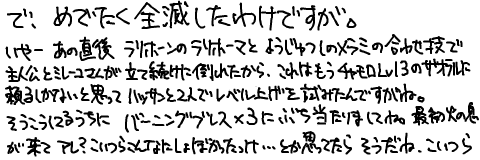 で、めでたく全滅したわけですが。
いやー あの直後 ラリホーンのラリホーマと ようじゅつしのメラミの合わせ技で
主人公とミレーユさんが立て続けに倒れたから、これはもうチャモロLv13のザオラルに
頼るしかないと思って ハッサンと2人でレベル上げを試みたんですがね。
そうこうしてるうちに バーニングブレス×3に ぶち当たりましてね。最初 火の息
が来て アレ?こいつらこんなにしょぼかったっけ…とか思ってたら そうだね、こいつら